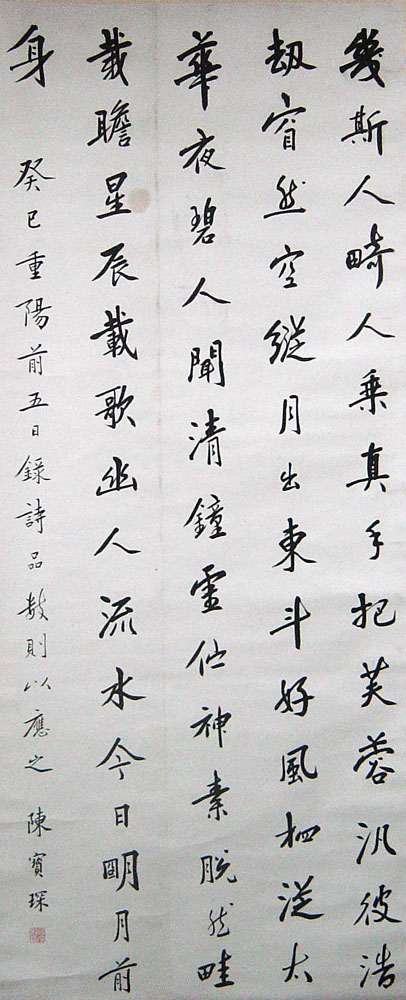 幾斯人畸人乘真手把芙蓉汎彼浩
劫窅然空縱月出東斗好風相從太
華夜碧人聞清鐘虛佇神素脫然畦
載瞻星辰載歌幽人流水今日明月前
身
癸巳重陽前五日錄詩品數則以應之 陳寶琛